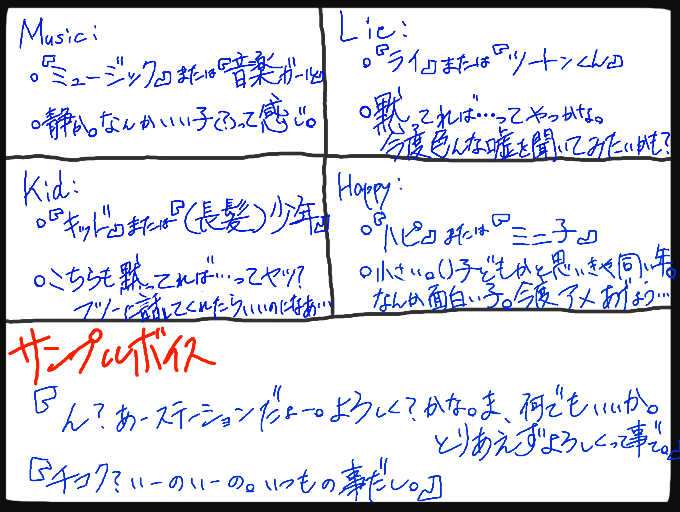 Music:
。『ミュージック』または『音楽ガール』
。静か。なんかいい子ぶって感じ。
Lie:
。『ライ』または『ツートンくん』
。黙ってれば…ってやつかな。
今度色んな嘘を聞いてみたいかも?
Kid:
。『キッド』または『(長髪)少年』
。こちらも黙ってれば…ってヤツ?
フツーに話してくれたらいいのになぁ…
Happy:
。『ハピ』または『ミニ子』
。小さい。()子どもかと思いきや同い年。
なんか面白い子。今度アメあげよう…
サンプルボイス
『ん?あーステーションだよー。よろしく?かな。ま、何でもいいか。
とりあえずよろしくって事で。』
『チコク?いーのいーの。いつもの事だし。』